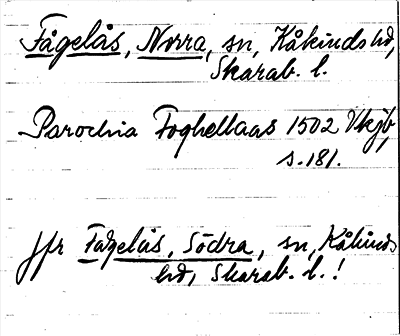 Fågelås, Norra, sn, Kåkinds hd,
Skarab. l.
Parochia Foghellaas 1502 Vkjb,
s. 181.
Jfr Fågelås, Södra, sn, Kåkinds
hd, Skarab. l.!